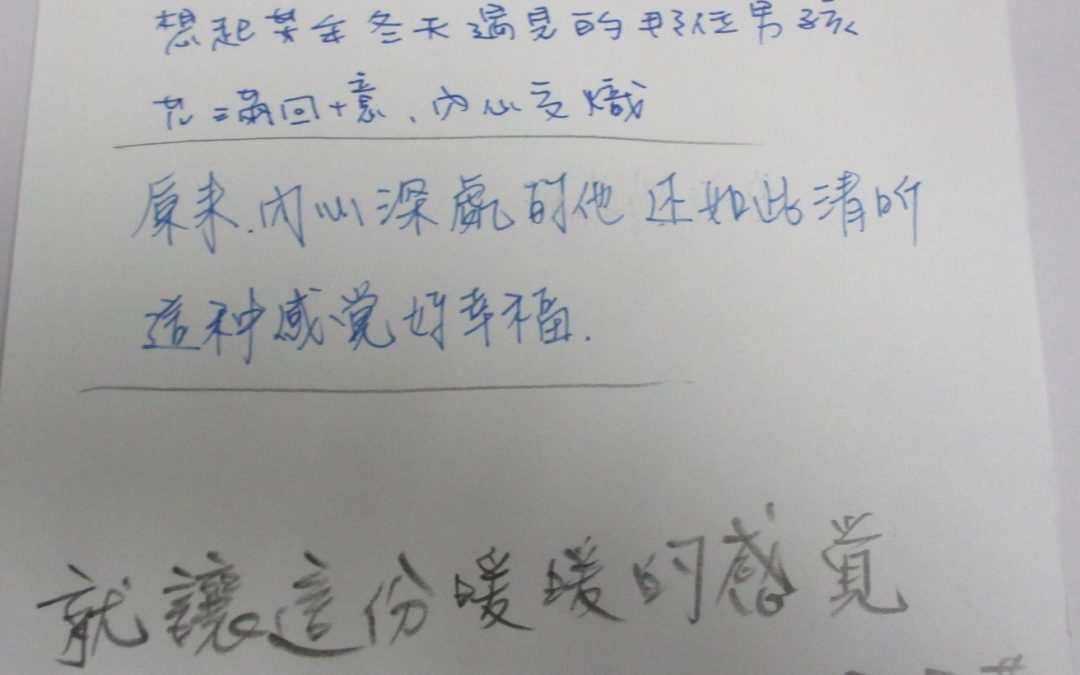 想起某年冬天遇見的那位男孩
充滿回憶、內心交熾
原來.内心深處的他还如此清晰
這种感覺好幸福.
就讓這份暖暖的感覺